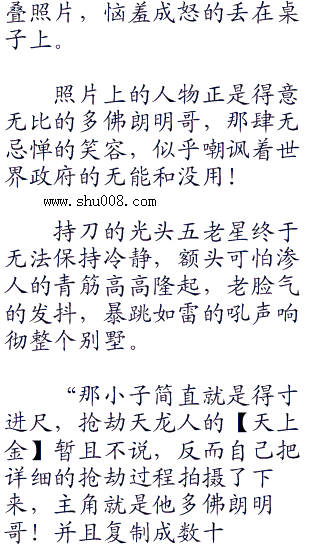 叠照片，恼羞成怒的丢在桌
子上。
照片上的人物正是得意
无比的多佛朗明哥，那肆无
忌惮的笑容，似乎嘲讽着世
界政府的无能和没用！
www.shu008.com
持刀的光头五老星终于
无法保持冷静，额头可怕渗
人的青筋高高隆起，老脸气
的发抖，暴跳如雷的吼声响
彻整个别墅。
“那小子简直就是得寸
进尺，抢劫天龙人的【天上
金】暂且不说，反而自己把
详细的抢劫过程拍摄了下
来，主角就是他多佛朗明
哥！并且复制成数十